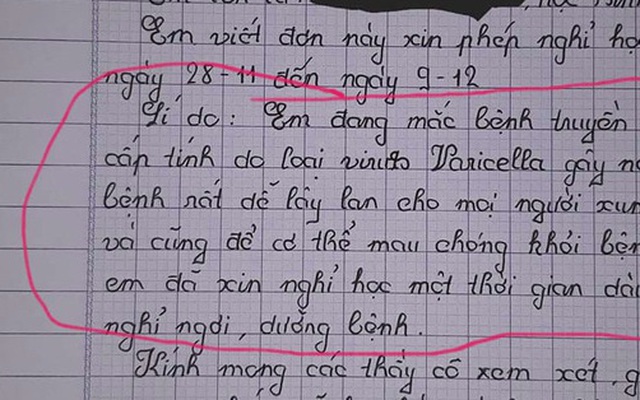 Em viết đơn này xin phép nghỉ họ
ngày 28-11 đến ngày 9-12
Lí do: Em đang mắc bệnh truyền
cấp tính do loại virus Varicella gây n
bệnh rất dễ lây lan cho mọi người xun
và cũng để có thể mau chóng khỏi bện
em đã xin nghỉ học một thời gian dài
nghỉ ngơi, dưỡng bệnh.
Kính mong các thầy cô xem xét, g